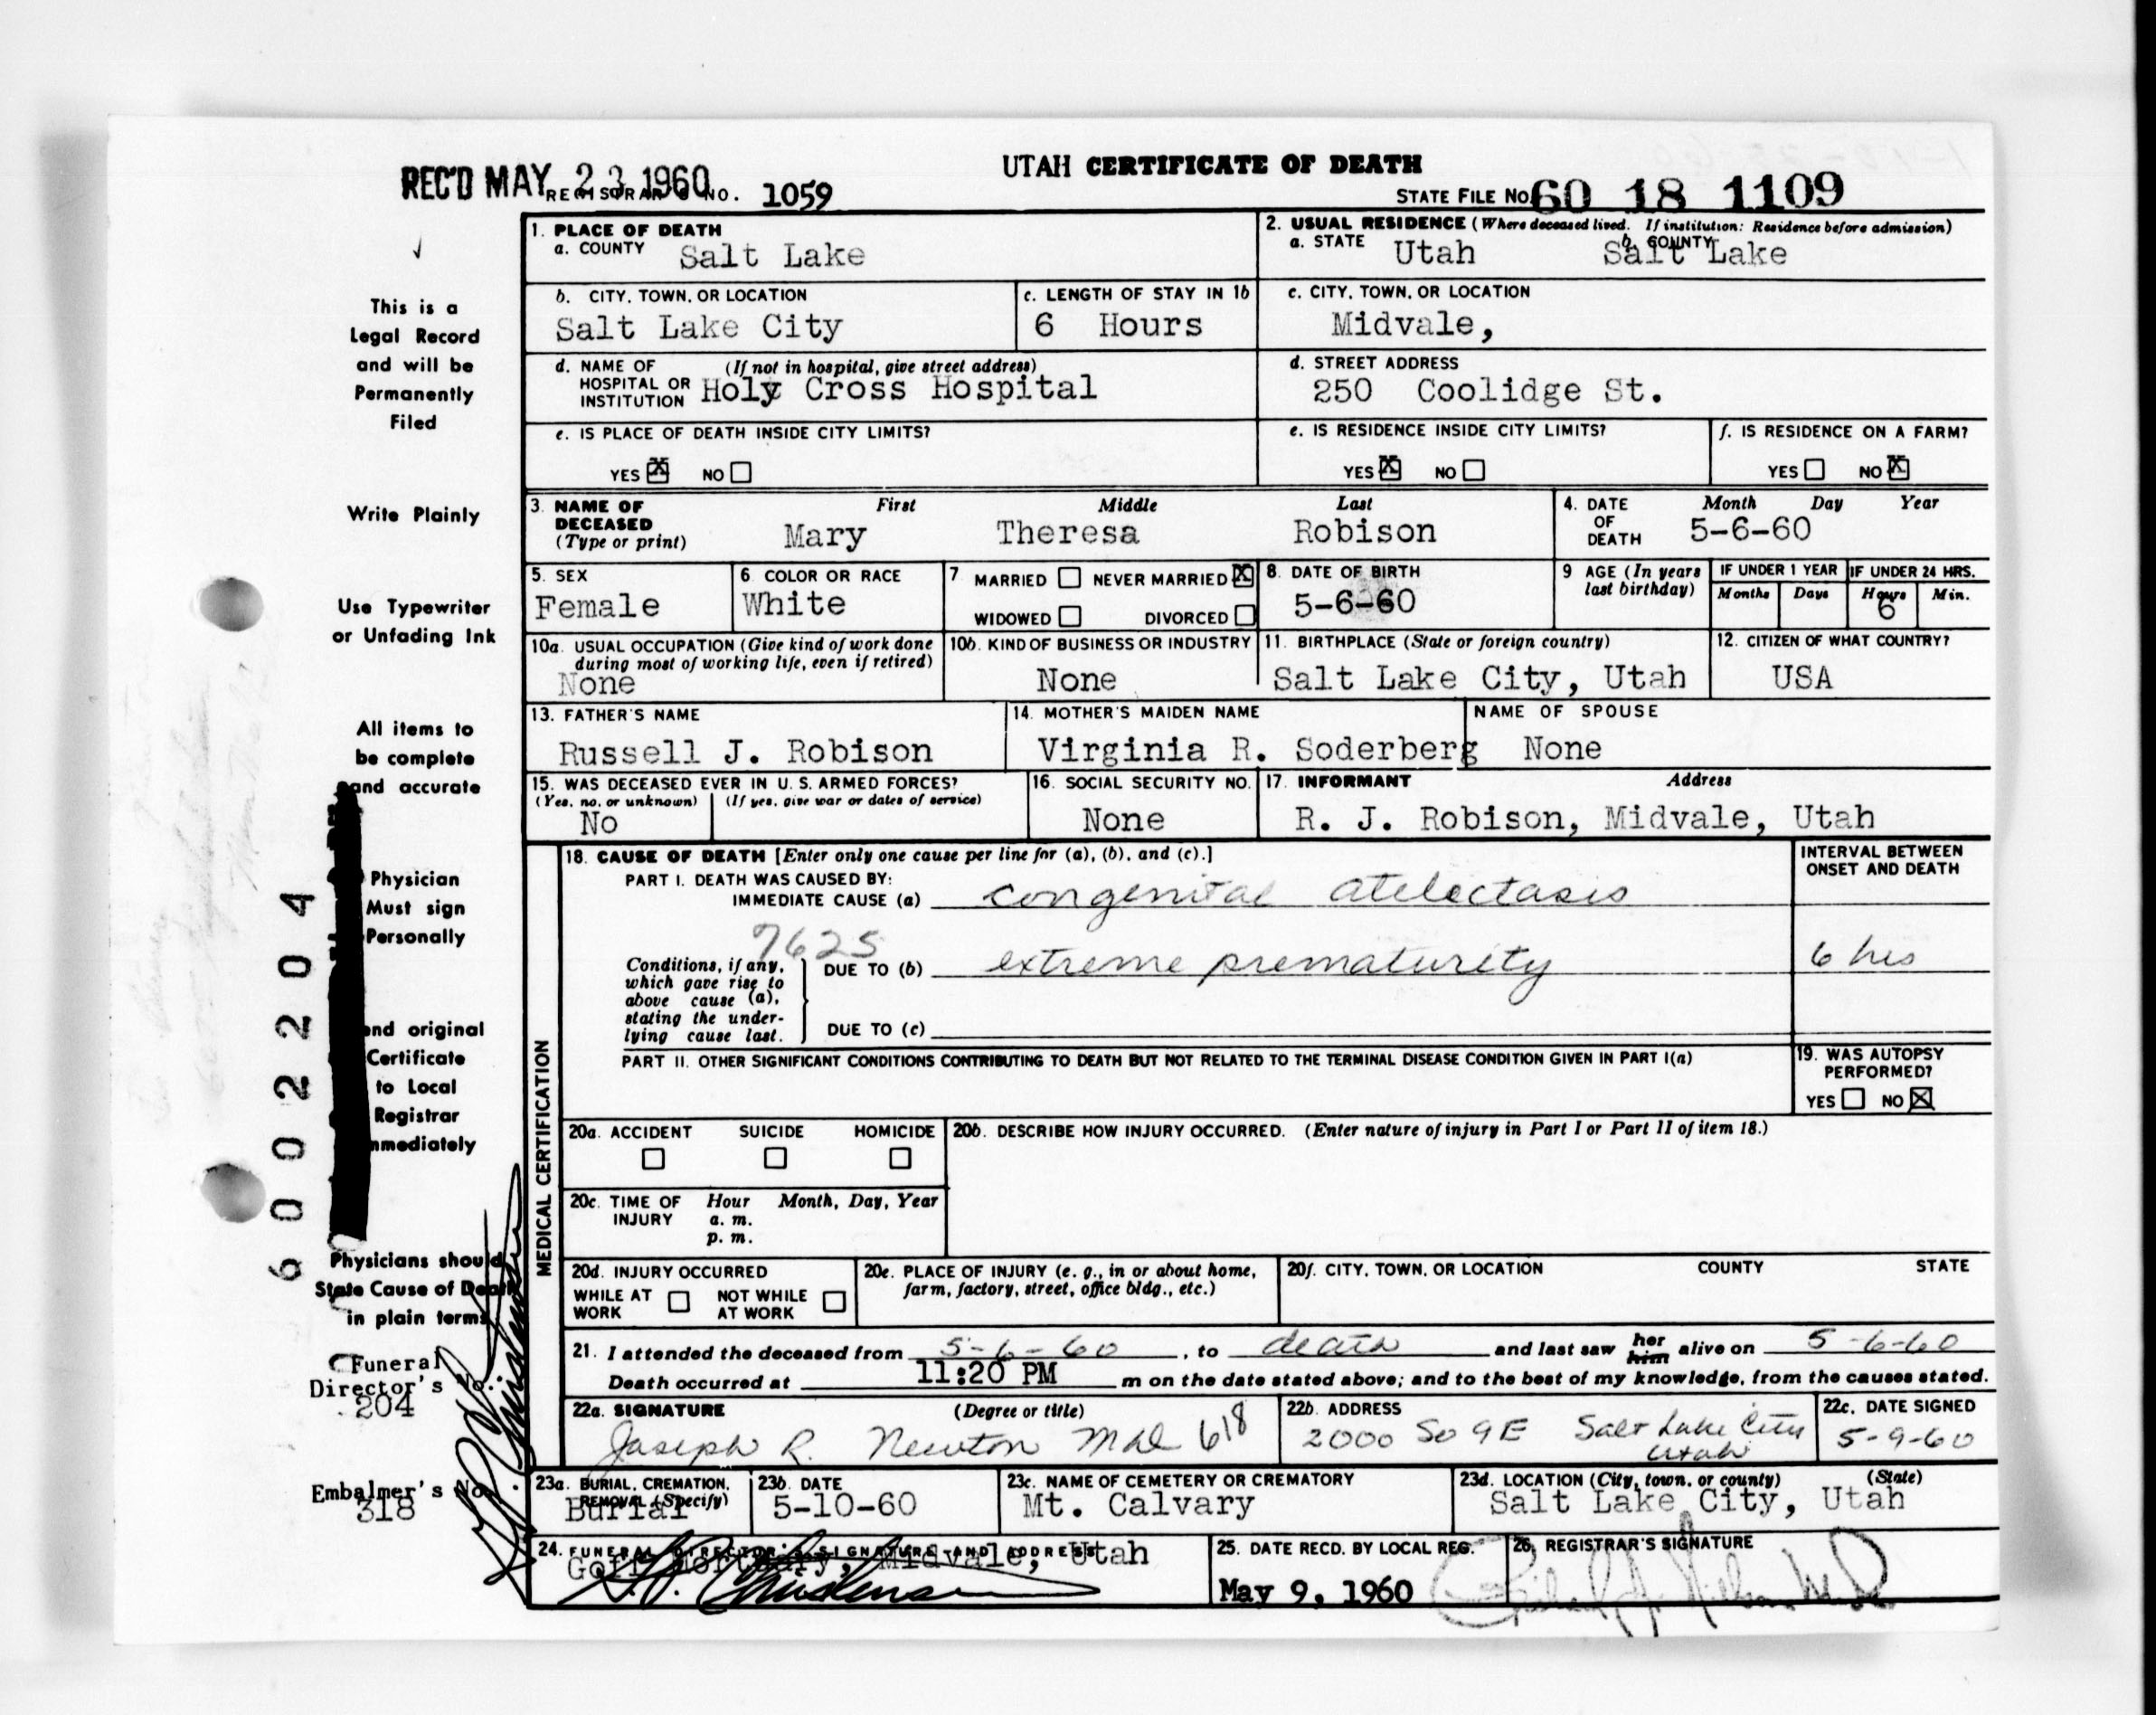 REC'D MAY 23 1960
REGISTRAR'S NO. 1059
UTAH CERTIFICATE OF DEATH
STATE FILE NO. 60 18 1109
This is a
Legal Record
and will be
Permanently
Filed
Write Plainly
Use Typewriter
or Unfading Ink
All items to
be complete
and accurate
Physician
Must sign
Personally
end original
Certificate
to Local
Registrar
mmediately
Physicians should
State Cause of Death
in plain terms
Funeral
Director's No.
204
Embalmer's No.
318
6002204
1. PLACE OF DEATH
a. COUNTY Salt Lake
2. USUAL RESIDENCE (Where deceased lived. If institution: Residence before admission)
a. STATE Utah b. COUNTY Salt Lake
b. CITY, TOWN, OR LOCATION
Salt Lake City
c. LENGTH OF STAY IN 1b
6 Hours
c. CITY, TOWN, OR LOCATION
Midvale,
d. NAME OF HOSPITAL OR INSTITUTION (If not in hospital, give street address)
Holy Cross Hospital
d. STREET ADDRESS
250 Coolidge St.
e. IS PLACE OF DEATH INSIDE CITY LIMITS?
YES X NO
e. IS RESIDENCE INSIDE CITY LIMITS?
YES X NO
f. IS RESIDENCE ON A FARM?
YES NO X
3. NAME OF DECEASED (Type or print)
First Middle Last
Mary Theresa Robison
4. DATE OF DEATH Month Day Year
5-6-60
5. SEX
Female
6 COLOR OR RACE
White
7 MARRIED NEVER MARRIED X
WIDOWED DIVORCED
8. DATE OF BIRTH
5-6-60
9 AGE (In years last birthday)
IF UNDER 1 YEAR IF UNDER 24 HRS.
Months Days Hours Min.
6
10a. USUAL OCCUPATION (Give kind of work done
during most of working life, even if retired)
None
10b. KIND OF BUSINESS OR INDUSTRY
None
11. BIRTHPLACE (State or foreign country)
Salt Lake City, Utah
12. CITIZEN OF WHAT COUNTRY?
USA
13. FATHER'S NAME
Russell J. Robison
14. MOTHER'S MAIDEN NAME
Virginia R. Soderberg
NAME OF SPOUSE
None
15. WAS DECEASED EVER IN U. S. ARMED FORCES?
(Yes, no, or unknown) (If yes, give war or dates of service)
No
16. SOCIAL SECURITY NO.
None
17. INFORMANT Address
R. J. Robison, Midvale, Utah
MEDICAL CERTIFICATION
18. CAUSE OF DEATH [Enter only one cause per line for (a), (b), and (c).]
INTERVAL BETWEEN
ONSET AND DEATH
PART I. DEATH WAS CAUSED BY:
IMMEDIATE CAUSE (a) congenital atelectasis
7625
Conditions, if any,
which gave rise to
above cause (a),
stating the under-
lying cause last.
DUE TO (b) extreme prematurity 6 hrs
DUE TO (c)
PART II. OTHER SIGNIFICANT CONDITIONS CONTRIBUTING TO DEATH BUT NOT RELATED TO THE TERMINAL DISEASE CONDITION GIVEN IN PART I(a)
19. WAS AUTOPSY
PERFORMED?
YES NO X
20a. ACCIDENT SUICIDE HOMICIDE
20b. DESCRIBE HOW INJURY OCCURRED. (Enter nature of injury in Part I or Part II of item 18.)
20c. TIME OF INJURY Hour Month, Day, Year
a. m.
p. m.
20d. INJURY OCCURRED
WHILE AT WORK NOT WHILE AT WORK
20e. PLACE OF INJURY (e. g., in or about home,
farm, factory, street, office bldg., etc.)
20f. CITY, TOWN, OR LOCATION COUNTY STATE
21. I attended the deceased from 5-6-60, to death and last saw her him alive on 5-6-60
Death occurred at 11:20 PM m on the date stated above; and to the best of my knowledge, from the causes stated.
22a. SIGNATURE (Degree or title)
Joseph R. Newton M D 618
22b. ADDRESS
2000 So 9 E Salt Lake City
Utah
22c. DATE SIGNED
5-9-60
23a. BURIAL, CREMATION, REMOVAL (Specify)
Burial
23b. DATE
5-10-60
23c. NAME OF CEMETERY OR CREMATORY
Mt. Calvary
23d. LOCATION (City, town, or county) (State)
Salt Lake City, Utah
24. FUNERAL DIRECTOR'S SIGNATURE AND ADDRESS
Goff Mortuary, Midvale, Utah
25. DATE RECD. BY LOCAL REG.
May 9, 1960
26. REGISTRAR'S SIGNATURE